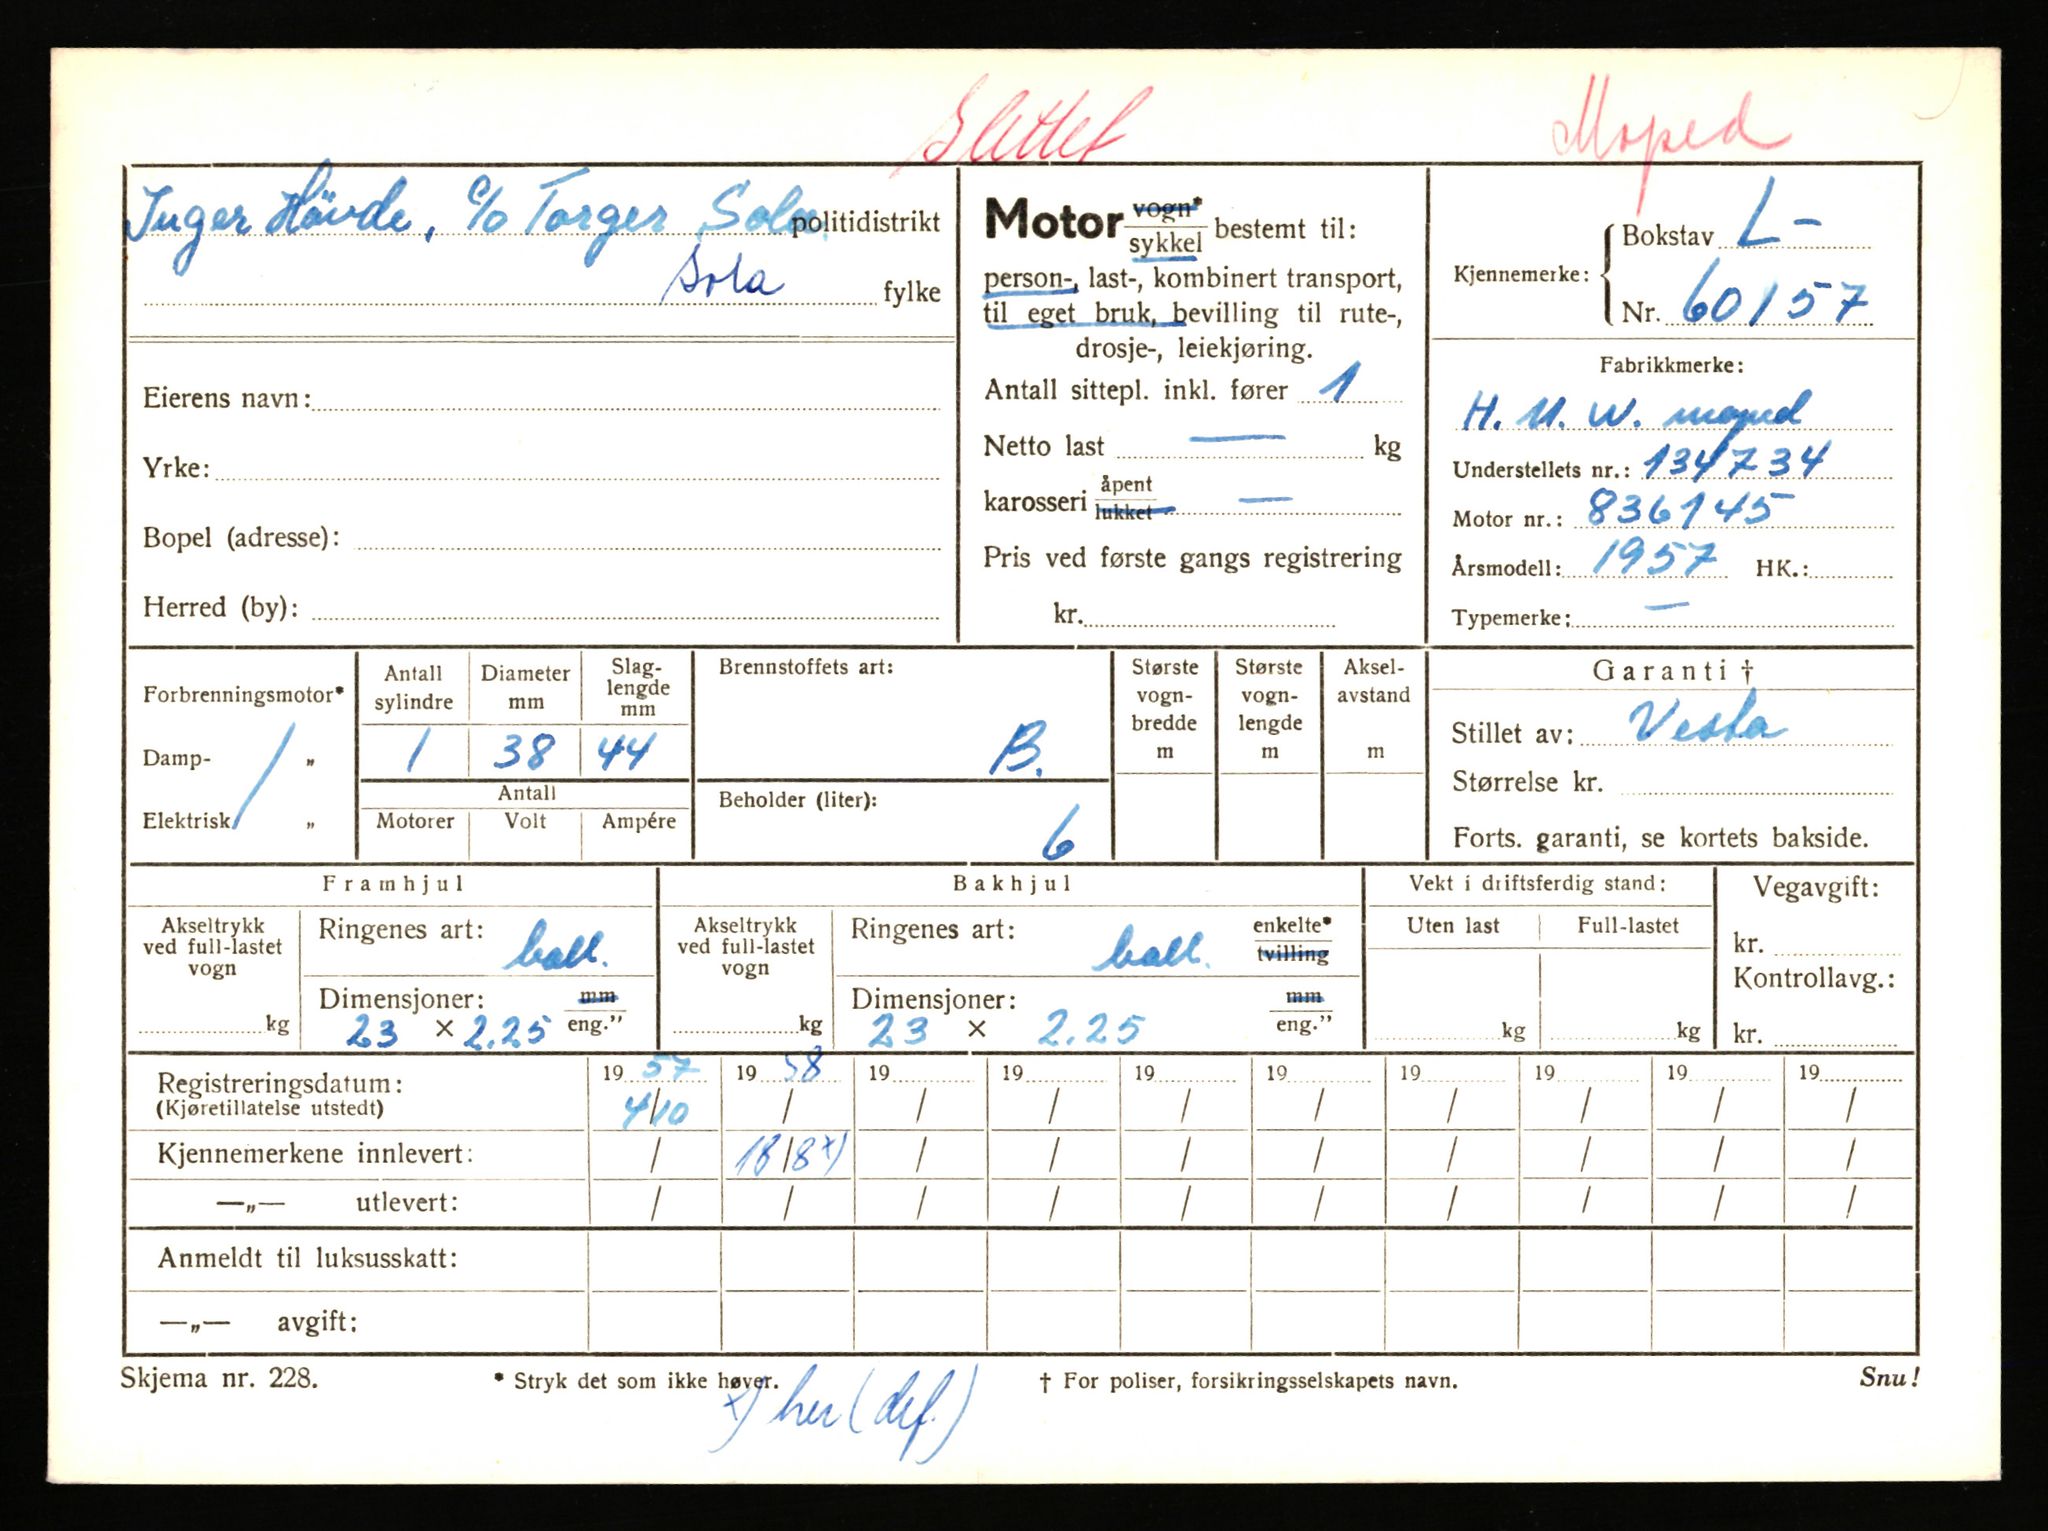 Slettet
Moped
Inger Hövde, c/o Torger Sola politidistrikt
Sola fylke
Eierens navn:
Yrke:
Bopel (adresse):
Herred (by):
Motor vogn* / sykkel bestemt til:
person-, last-, kombinert transport,
til eget bruk, bevilling til rute-,
drosje-, leiekjøring.
Antall sittepl. inkl. fører 1
Netto last — kg
karosseri åpent / lukket —
Pris ved første gangs registrering
kr.
Kjennemerke: Bokstav L-
Nr. 60157
Fabrikkmerke:
H. M. W. moped
Understellets nr.: 134734
Motor nr.: 836145
Årsmodell: 1957 HK.:
Typemerke: —
Forbrenningsmotor*
Damp- „
Elektrisk „
Antall sylindre 1
Diameter mm 38
Slag-lengde mm 44
Antall
Motorer Volt Ampére
Brennstoffets art:
B.
Beholder (liter):
6
Største vogn-bredde m
Største vogn-lengde m
Aksel-avstand m
Garanti †
Stillet av: Vesta
Størrelse kr.
Forts. garanti, se kortets bakside.
Framhjul
Akseltrykk ved full-lastet vogn
kg
Ringenes art: ball.
Dimensjoner: mm
23 × 2.25 eng."
Bakhjul
Akseltrykk ved full-lastet vogn
kg
Ringenes art: ball. enkelte* / tvilling
Dimensjoner: mm
23 × 2.25 eng."
Vekt i driftsferdig stand:
Uten last Full-lastet
kg kg
Vegavgift:
kr.
Kontrollavg.:
kr.
Registreringsdatum: 1957 1958 19 19 19 19 19 19 19 19
(Kjøretillatelse utstedt) 4/10 / / / / / / / / /
Kjennemerkene innlevert: / 18/8 x) / / / / / / / /
—„— utlevert: / / / / / / / / / /
Anmeldt til luksusskatt:
—„— avgift:
Skjema nr. 228. * Stryk det som ikke høver. † For poliser, forsikringsselskapets navn. Snu!
x) her (def.)